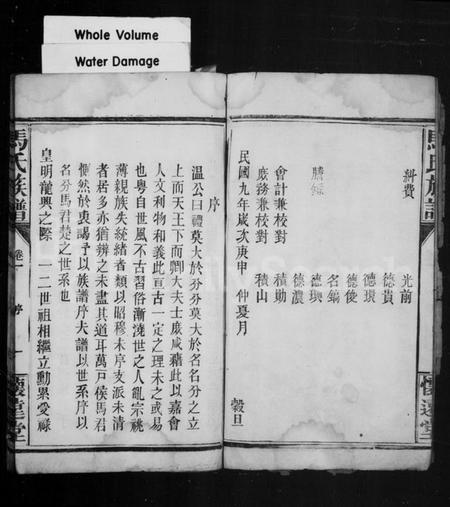 Whole Volume
Water Damage
馬氏族譜
懷達堂
科費
光前
德貴
德環
德俊
名鏑
勝
德瑛
德濃
會計兼校對
積勛
庶務兼校對
積山
民國九年歲次庚申仲夏月
穀旦
序
溫公曰禮莫大於分分莫大於名名分之立
上而天王下而卿大夫士庶咸藉此以嘉會
人文利物和義此亘古一定之理未之或易
也粵自世風不古習俗漸澆世之人亂宗祧
薄親族失統緒者類以昭穆未序支派未清
者居多亦猶辨之未盡其道耳萬戶侯馬君
惻然於衷囑予以族譜序夫譜以世系序以
名分馬君楚之世系也
皇明龍興之際一二世祖相繼立勳累受祿
馬氏族譜
卷一
序
一
懷達堂